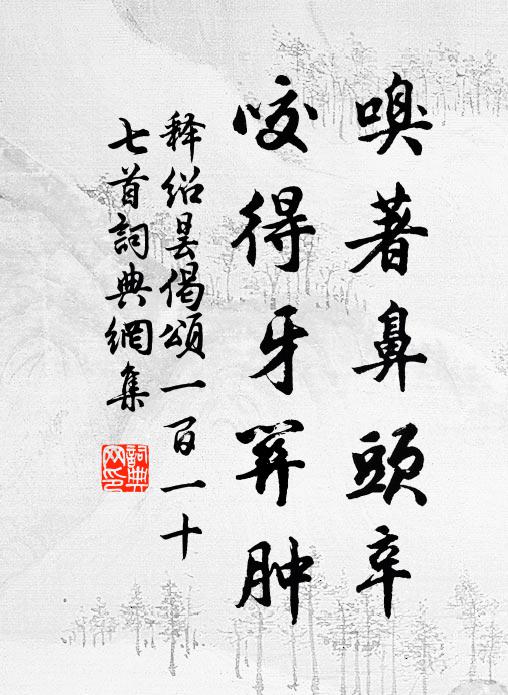 嗅著鼻頭辛
咬得牙關肿
释绍昙偈頌一百一十
七首詞典網集
詞典网印